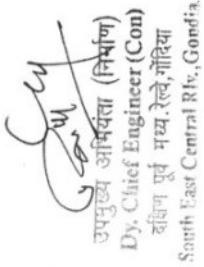 उपमुख्य अभियंता (निर्माण)
Dy. Chief Engineer (Con)
दक्षिण पूर्व मध्य.रेल्वे,गोंदिया
South East Central Rly., Gondia.